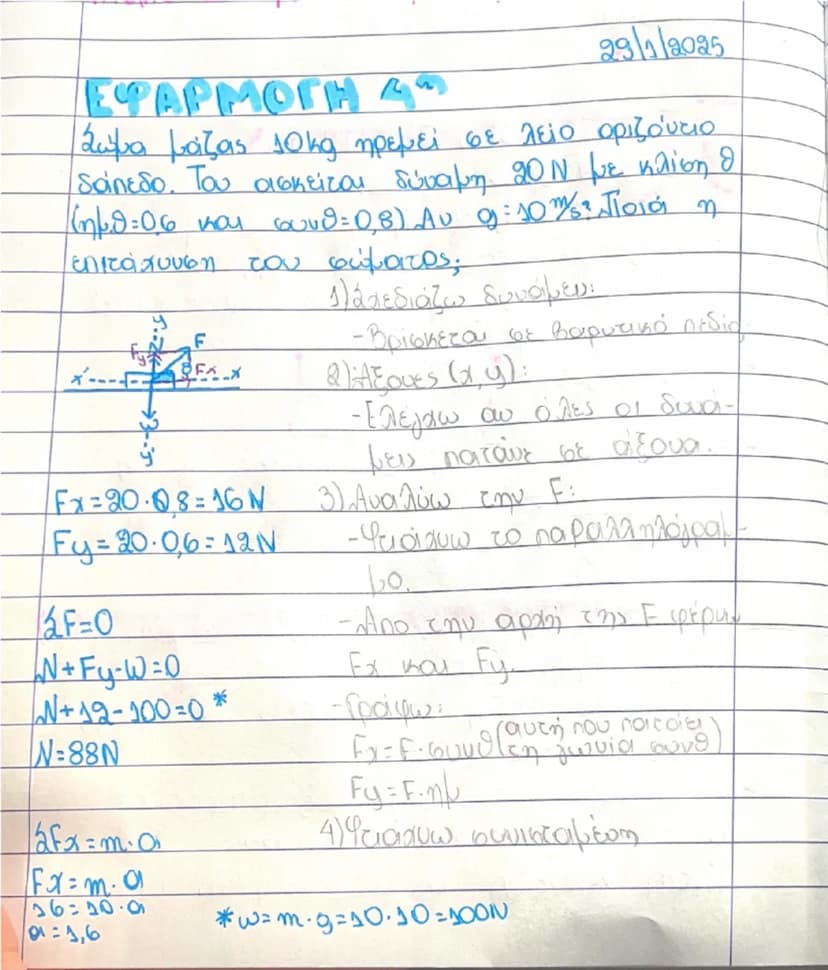 29/1/2025
ΕΦΑΡΜΟΓΗ 4η
Σώμα μάζας 10kg ηρεμεί σε λείο οριζόντιο
δάπεδο. Του ασκείται δύναμη 20N με κλίση θ
(ημθ=0,6 και συνθ=0,8) Αν g=10m/s². Ποιά η
επιτάχυνση του σώματος;
1) Σχεδιάζω δυνάμεις:
-Βρίσκεται σε βαρυτικό πεδίο
2) Άξονες (x,y):
-Ελέγχω αν όλες οι δυνά-
μεις πατάνε σε άξονα.
y
N
Fy
F
θ
Fx
x'
x
w
y'
Fx=20·0,8=16N
Fy=20·0,6=12N
3) Αναλύω την F:
-Φτιάχνω το παραλληλόγραμ-
μο.
-Απο την αρχή της F φέρνω
Fx και Fy.
-Γράφω:
Fx=F·συνθ (αυτή που πατάει
στη γωνία συνθ)
Fy=F·ημ
4) Φτιάχνω συνισταμένη
ΣF=0
N+Fy-W=0
N+12-100=0 *
N=88N
ΣFx=m·a
Fx=m·a
16=10·a
a=1,6
*w=m·g=10·10=100N